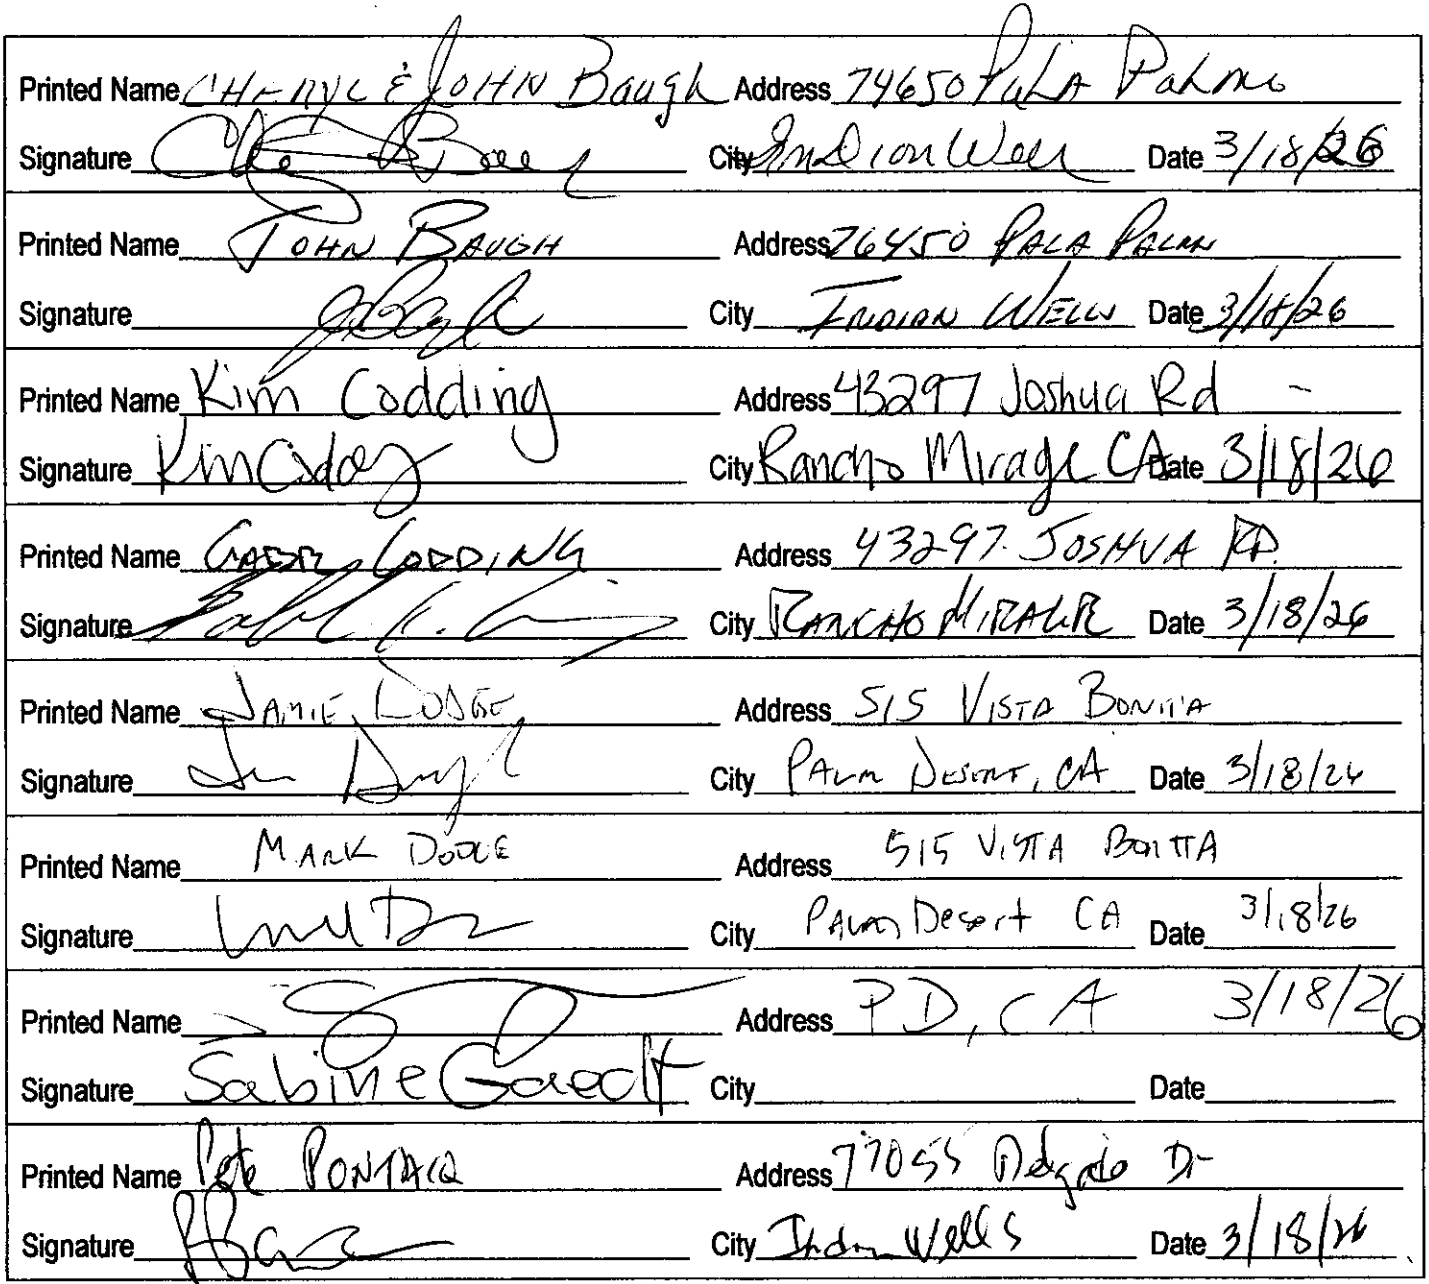 Printed Name CHERYL & JOHN Baugh Address 74650 PALA PALMO
Signature City Indian Well Date 3/18/26
Printed Name JOHN BAUGH Address 76450 PALA PALMA
Signature City INDIAN WELLS Date 3/18/26
Printed Name Kim Codding Address 43297 Joshua Rd
Signature Kim City Rancho Mirage CA Date 3/18/26
Printed Name CODDING Address 43297 JOSHUA RD.
Signature City RANCHO MIRAGE Date 3/18/26
Printed Name JAMIE DODGE Address 515 VISTA BONITA
Signature City PALM DESERT, CA Date 3/18/26
Printed Name MARK DODGE Address 515 VISTA BONITA
Signature City PALM Desert CA Date 3/18/26
Printed Name Address PD, CA 3/18/26
Signature Sabine City Date
Printed Name Pete Address 77055 Delgado Dr
Signature City Indian Wells Date 3/18/26